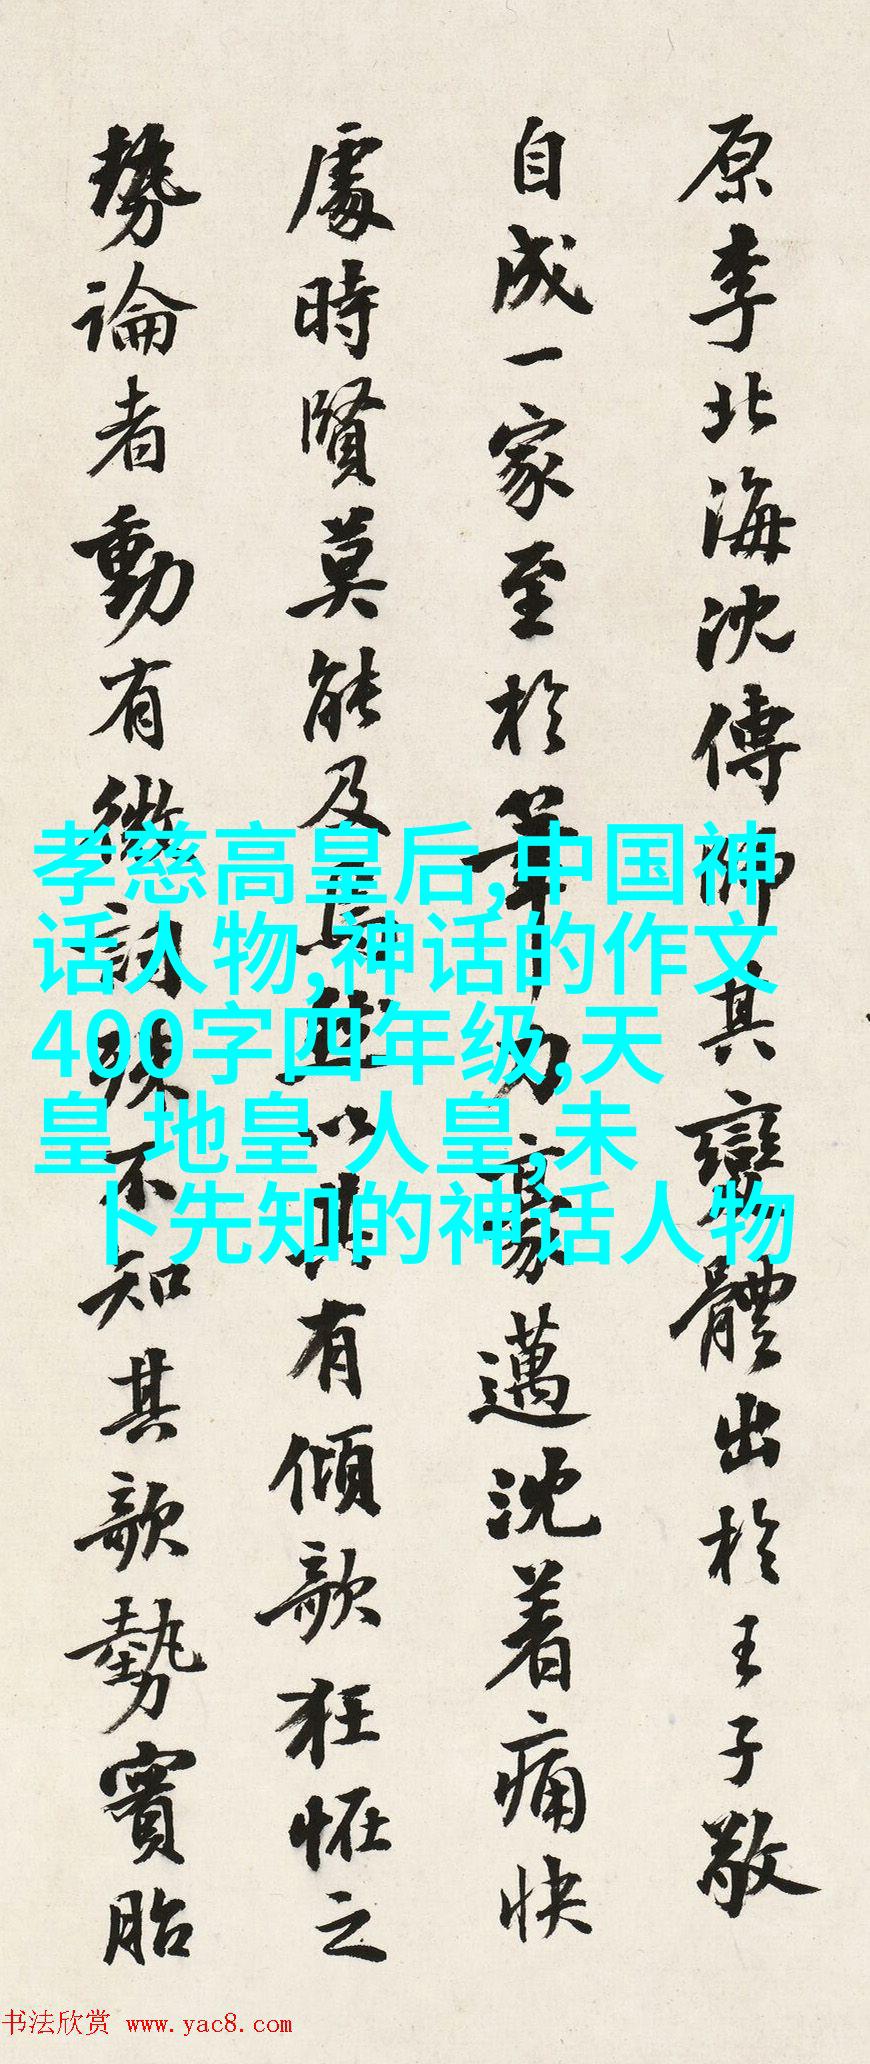 原李北海沈傳師其變體出於王子敬
自成一家至於筆力豪邁沈着痛快
處時賢莫能及焉以其有傾欹狂怪之
勢論者動有微詞殊不知其欹勢實胎
孝慈高皇后,中国神
话人物,神话的作文
400字四年级,天
皇 地皇 人皇,未
卜先知的神话人物
书法欣赏 www.yac8.com